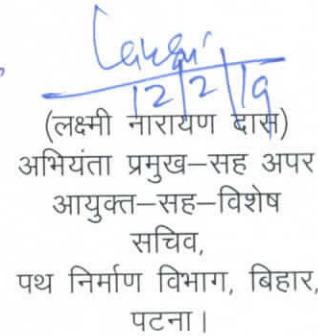 Lakshmi
12/2/19
(लक्ष्मी नारायण दास)
अभियंता प्रमुख–सह अपर
आयुक्त–सह–विशेष
सचिव,
पथ निर्माण विभाग, बिहार,
पटना।